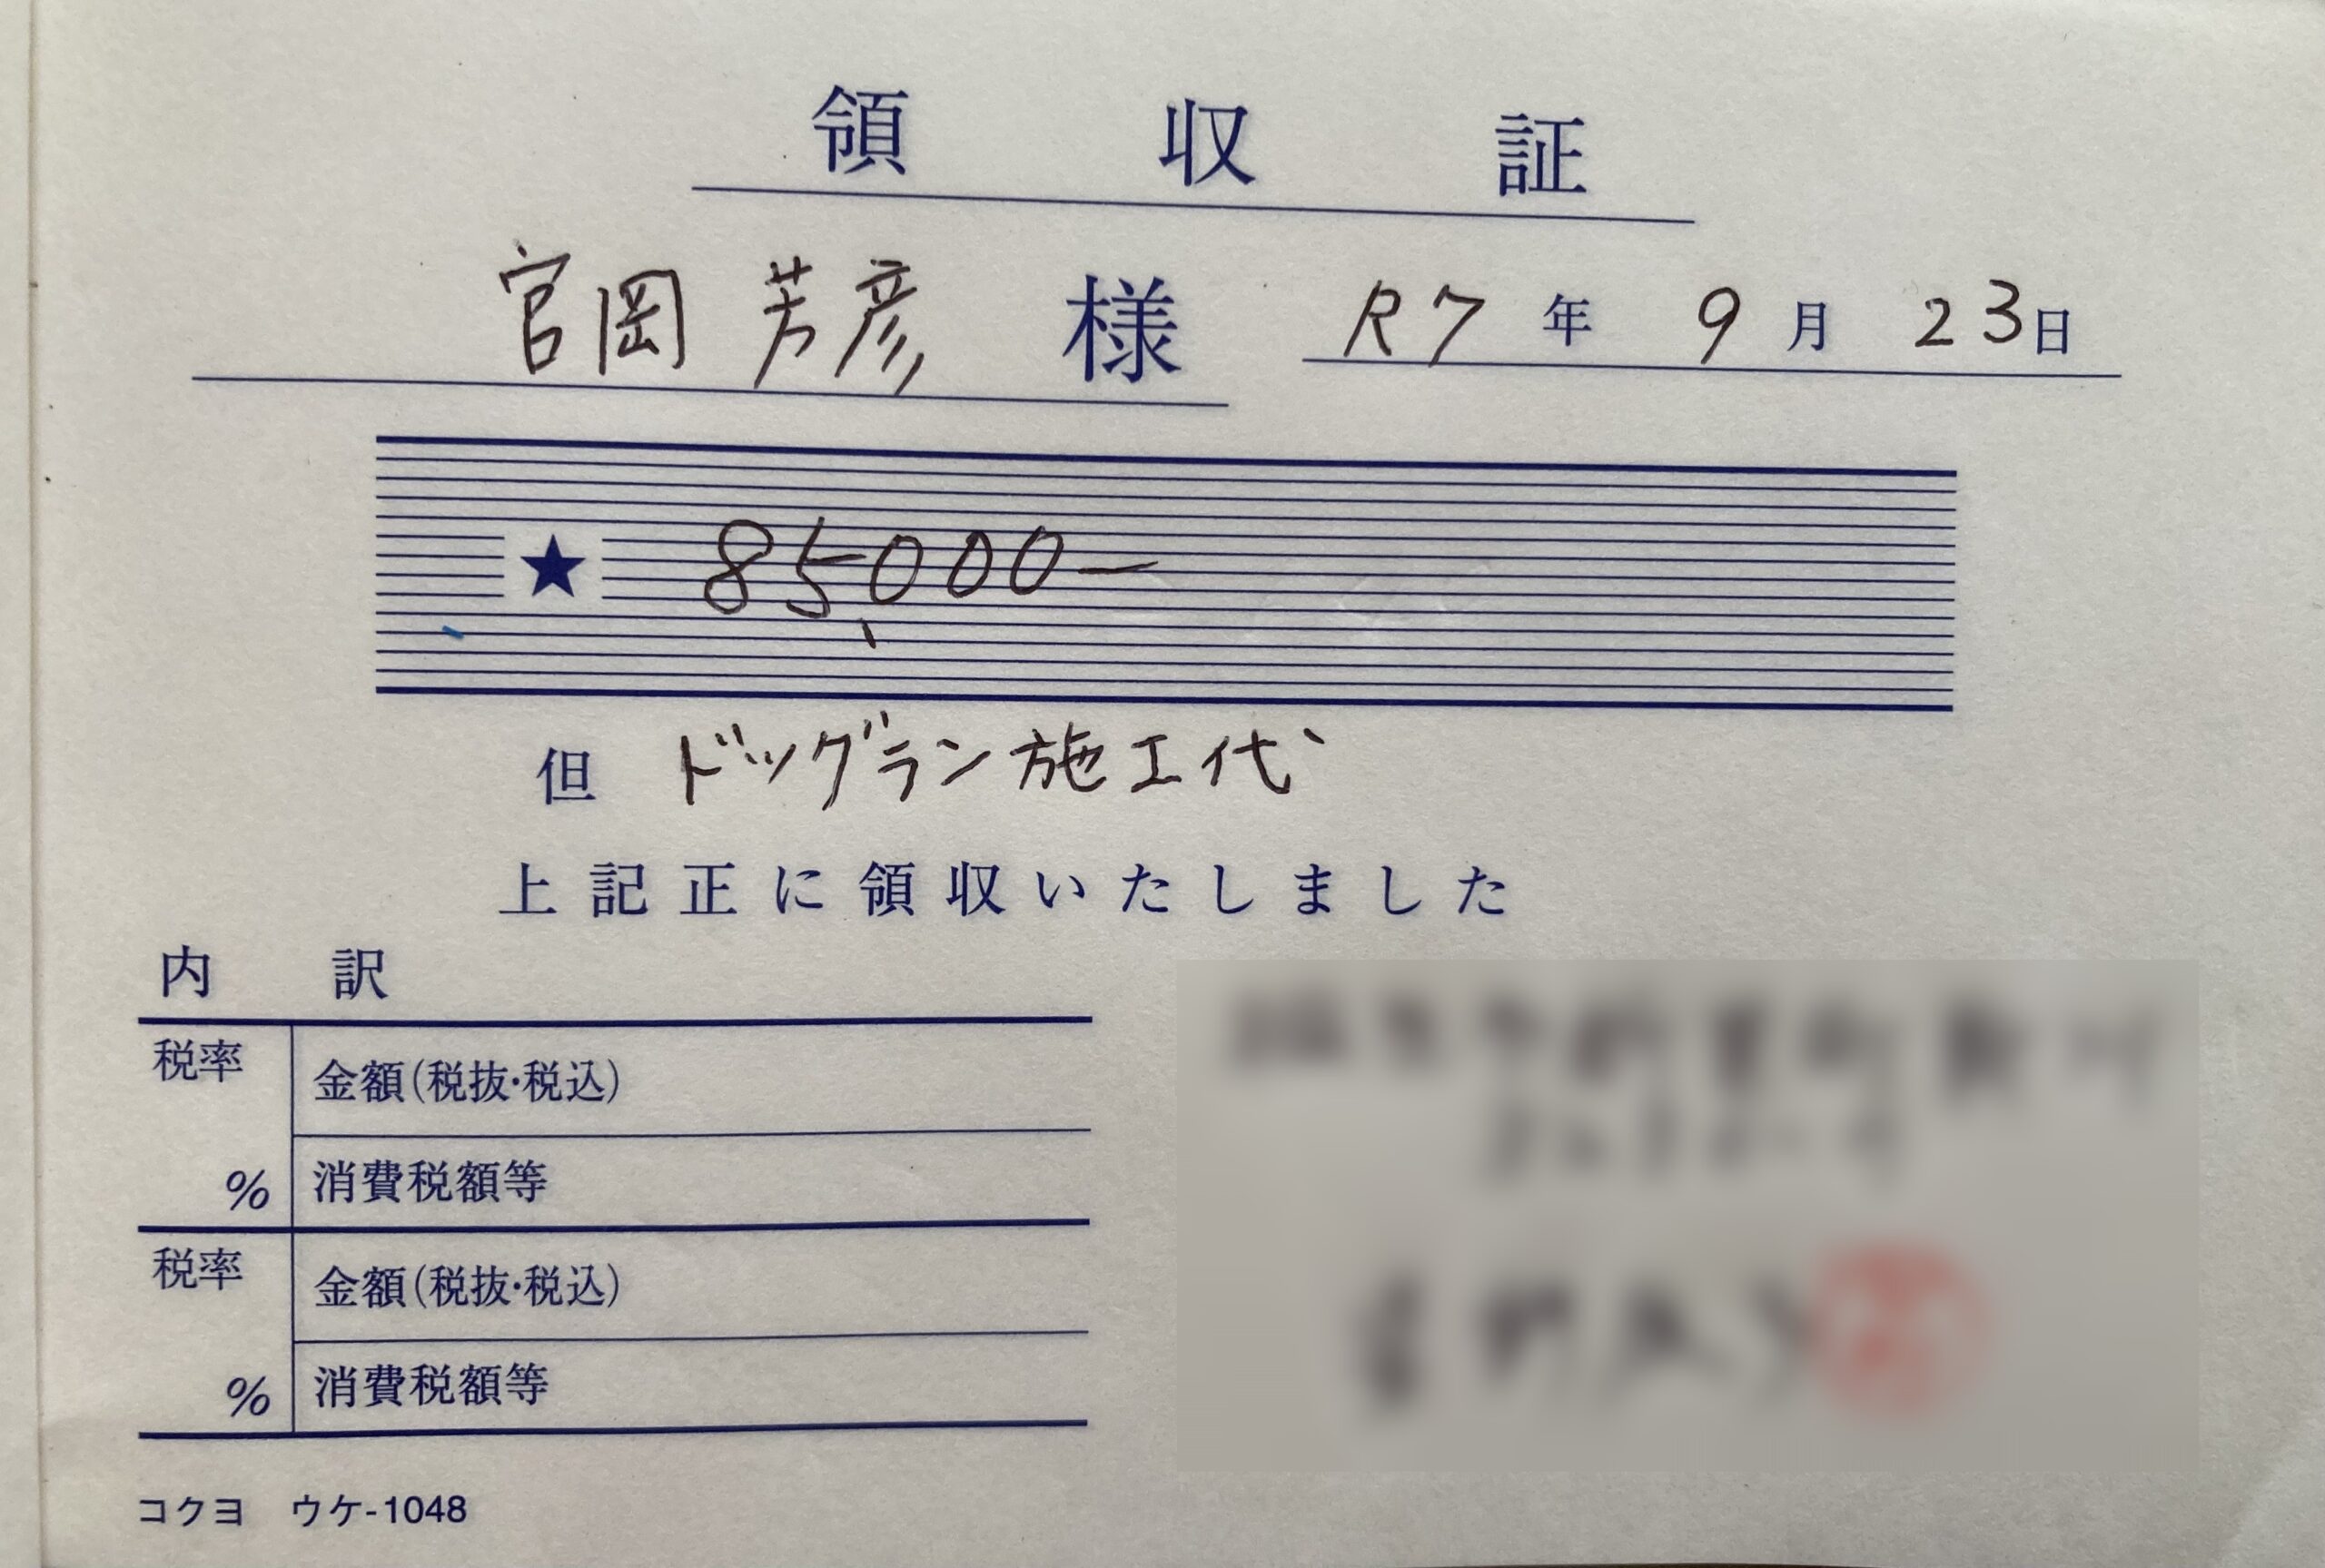 領収証
宮岡 芳彦 様 R7年 9月 23日
★ 85,000-
但 ドッグラン施工代
上記正に領収いたしました
内訳
税率 金額(税抜・税込)
% 消費税額等
税率 金額(税抜・税込)
% 消費税額等
コクヨ ウケ-1048